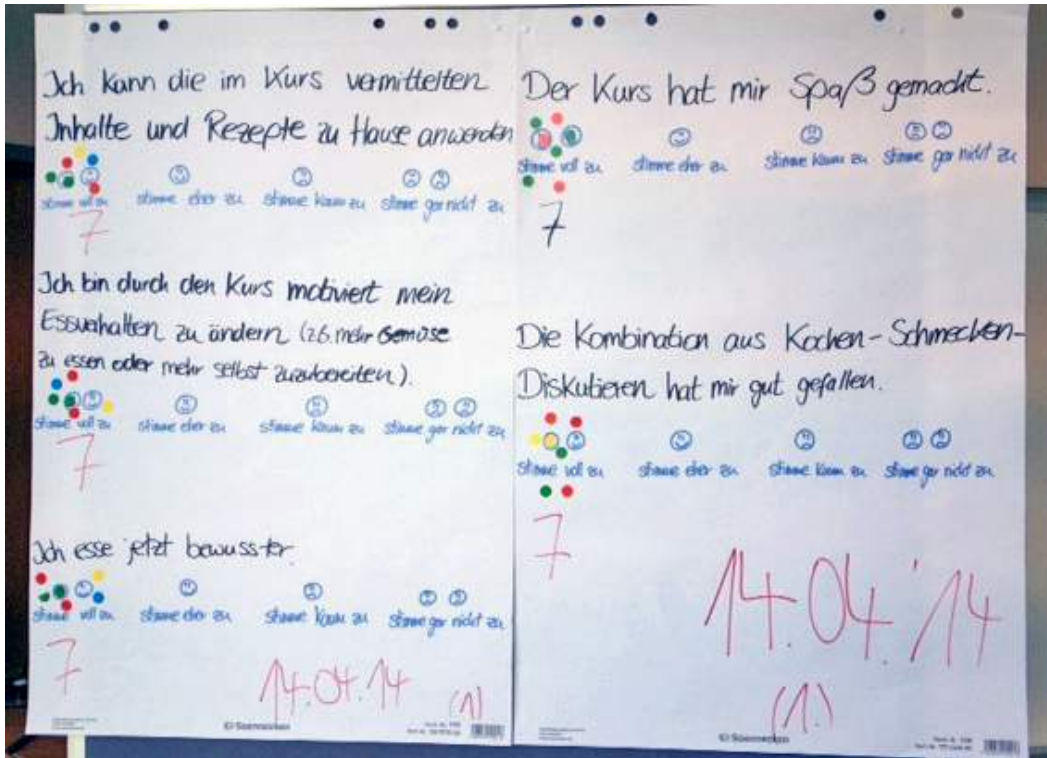 Ich kann die im Kurs vermittelten
Inhalte und Rezepte zu Hause anwenden
stimme voll zu stimme eher zu stimme kaum zu stimme gar nicht zu
7
Ich bin durch den Kurs motiviert mein
Essverhalten zu ändern (z.B. mehr Gemüse
zu essen oder mehr selbst zuzubereiten).
stimme voll zu stimme eher zu stimme kaum zu stimme gar nicht zu
7
Ich esse jetzt bewusster.
stimme voll zu stimme eher zu stimme kaum zu stimme gar nicht zu
7
14.04.14 (1)
Soennecken
Der Kurs hat mir Spaß gemacht.
stimme voll zu stimme eher zu stimme kaum zu stimme gar nicht zu
7
Die Kombination aus Kochen-Schmecken-
Diskutieren hat mir gut gefallen.
stimme voll zu stimme eher zu stimme kaum zu stimme gar nicht zu
7
14.04.'14
(1.)
Soennecken